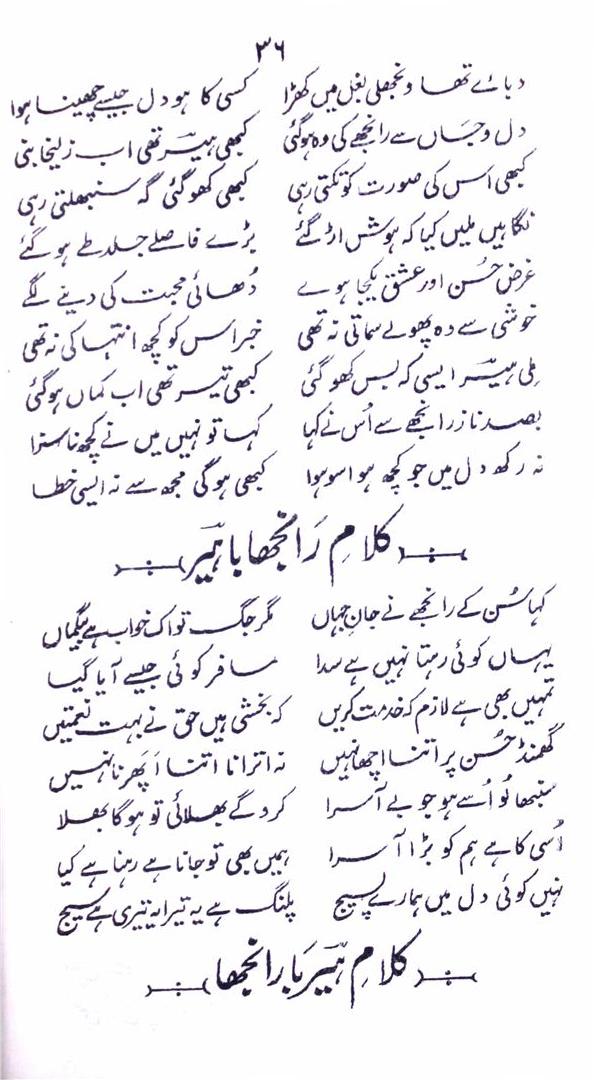 ۳۶
دبائے تھا ونجھلی بغل میں کھڑا کسی کا ہو دل جیسے چھینا ہوا
دل و جاں سے رانجھے کی وہ ہوگئی کبھی ہیر تھی اب زلیخا بنی
کبھی اس کی صورت کو تکتی رہی کبھی کھو گئی گہ سنبھلتی رہی
نگاہیں ملیں کیا کہ ہوش اڑ گئے بڑے فاصلے جلد طے ہو گئے
غرض حُسن اور عشق یکجا ہوے دُھائی محبت کی دینے لگے
خوشی سے وہ پھولے سماتی نہ تھی خبر اس کو کچھ انتہا کی نہ تھی
مِلی ہیر ایسی کہ بس کھو گئی کبھی تیر تھی اب کماں ہو گئی
بصد ناز رانجھے سے اُس نے کہا کہا تو نہیں میں نے کچھ ناسزا
نہ رکھ دل میں جو کچھ ہوا سو ہوا کبھی ہوگی مجھ سے نہ ایسی خطا
کلامِ رَانجھا با ہیر
کہا سُن کے رانجھے نے جانِ جہاں مگر جگ تو اک خواب ہے بیگماں
یہاں کوئی رہتا نہیں ہے سدا مسافر کوئی جیسے آیا گیا
تمہیں بھی ہے لازم کہ خدمت کریں کہ بخشی ہیں حق نے بہت نعمتیں
گھمنڈ حُسن پر اتنا اچھا نہیں نہ اترانا اتنا اَپَھرنا نہیں
سنبھالو اُسے ہو جو بے آسرا کرو گے بھلائی تو ہوگا بھلا
اُسی کا ہے ہم کو بڑا آسرا ہمیں بھی تو جانا ہے رہنا ہے کیا
نہیں کوئی دل میں ہمارے پسیج پلنگ ہے یہ تیرا یہ تیری ہے سیج
کلامِ ہیر بَا رانجھا